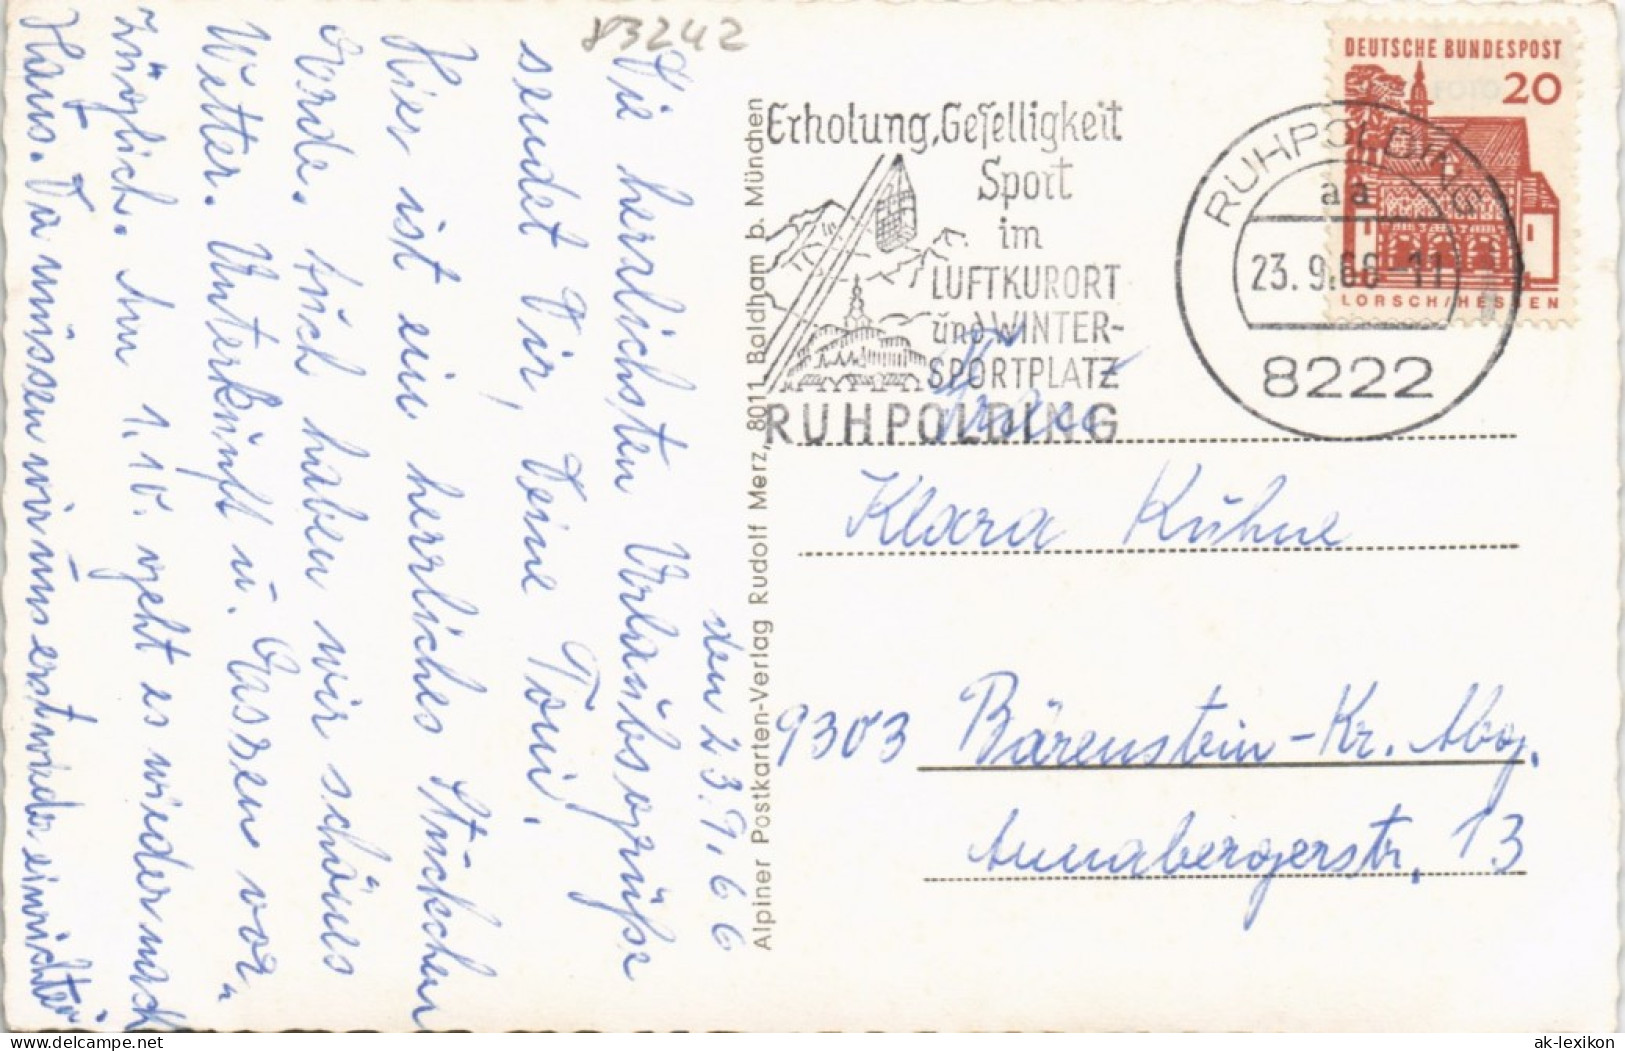 83242
den 23.9.66
Die herrlichsten Urlaubsgrüße
sendet Dir, Deine Toni.
Hier ist ein herrliches Stückchen
Erde. Auch haben wir schönes
Wetter. Unterkunft u. Essen vor„
züglich. Am 1.10. geht es wieder nach
Haus. Da müssen wir uns erst wieder einrichten
Alpiner Postkarten-Verlag Rudolf Merz, 8011 Baldham b. München
Erholung, Geselligkeit
Sport
im
LUFTKURORT
und WINTER-
SPORTPLATZ
RUHPOLDING
RUHPOLDING
aa
23.9.66-11
8222
DEUTSCHE BUNDESPOST
20
LORSCH/HESSEN
Frau
Klara Kühne
9303 Bärenstein-Kr. Abg.
Annabergerstr. 13
delcampe.net
ak-lexikon